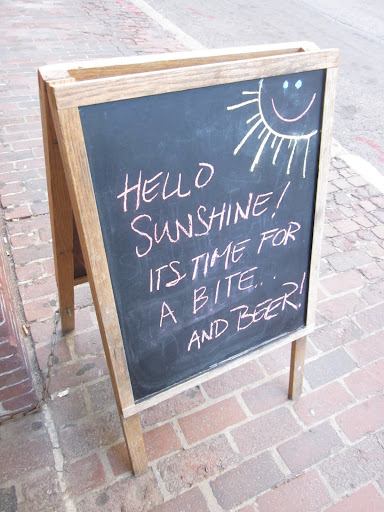 HELLO
SUNSHINE!
ITS TIME FOR
A BITE..
AND BEER!